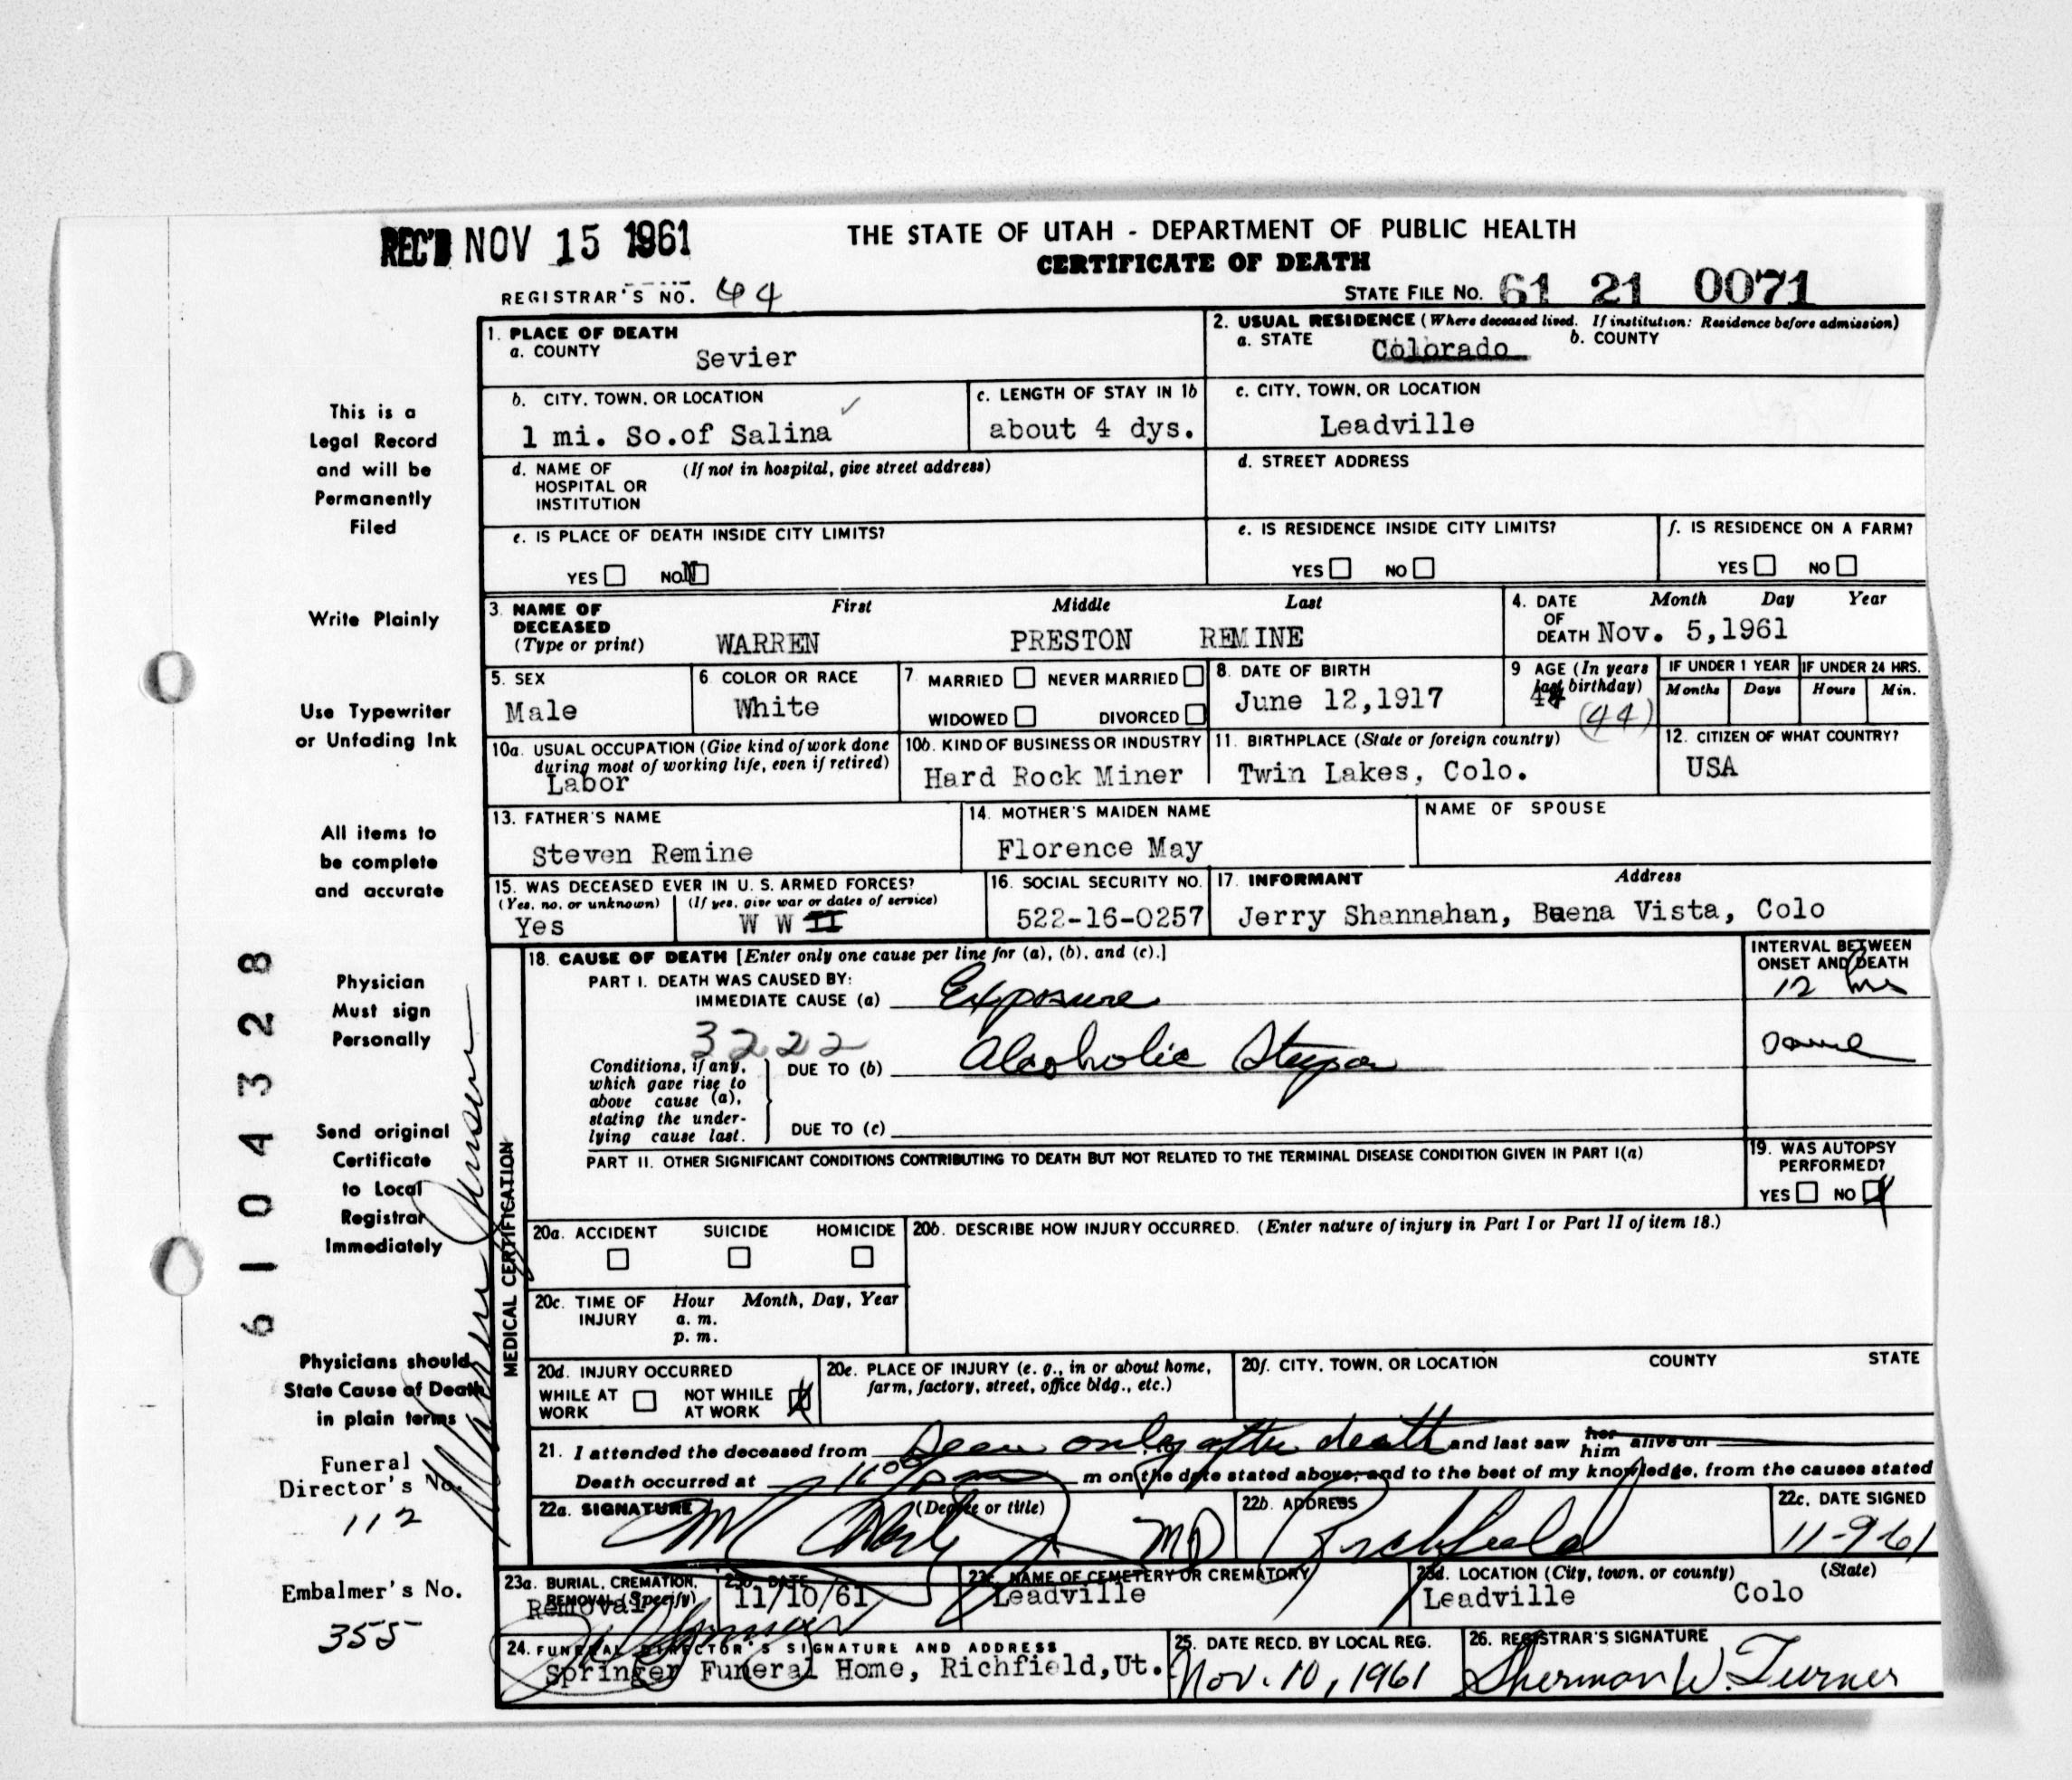 REC'D NOV 15 1961
THE STATE OF UTAH - DEPARTMENT OF PUBLIC HEALTH
CERTIFICATE OF DEATH
REGISTRAR'S NO. 44
STATE FILE NO. 61 21 0071
This is a
Legal Record
and will be
Permanently
Filed
Write Plainly
Use Typewriter
or Unfading Ink
All items to
be complete
and accurate
Physician
Must sign
Personally
Send original
Certificate
to Local
Registrar
Immediately
Physicians should
State Cause of Death
in plain terms
Funeral
Director's No.
112
Embalmer's No.
355
6104328
1. PLACE OF DEATH
a. COUNTY Sevier
2. USUAL RESIDENCE (Where deceased lived. If institution: Residence before admission)
a. STATE Colorado b. COUNTY
b. CITY, TOWN, OR LOCATION
1 mi. So.of Salina
c. LENGTH OF STAY IN 1b
about 4 dys.
c. CITY, TOWN, OR LOCATION
Leadville
d. NAME OF HOSPITAL OR INSTITUTION (If not in hospital, give street address)
d. STREET ADDRESS
e. IS PLACE OF DEATH INSIDE CITY LIMITS?
YES NO
e. IS RESIDENCE INSIDE CITY LIMITS?
YES NO
f. IS RESIDENCE ON A FARM?
YES NO
3. NAME OF DECEASED (Type or print)
First Middle Last
WARREN PRESTON REMINE
4. DATE OF DEATH Month Day Year
Nov. 5,1961
5. SEX
Male
6 COLOR OR RACE
White
7 MARRIED NEVER MARRIED
WIDOWED DIVORCED
8. DATE OF BIRTH
June 12,1917
9 AGE (In years last birthday)
(44)
IF UNDER 1 YEAR IF UNDER 24 HRS.
Months Days Hours Min.
10a. USUAL OCCUPATION (Give kind of work done during most of working life, even if retired)
Labor
10b. KIND OF BUSINESS OR INDUSTRY
Hard Rock Miner
11. BIRTHPLACE (State or foreign country)
Twin Lakes, Colo.
12. CITIZEN OF WHAT COUNTRY?
USA
13. FATHER'S NAME
Steven Remine
14. MOTHER'S MAIDEN NAME
Florence May
NAME OF SPOUSE
15. WAS DECEASED EVER IN U. S. ARMED FORCES?
(Yes, no, or unknown) (If yes, give war or dates of service)
Yes W W II
16. SOCIAL SECURITY NO.
522-16-0257
17. INFORMANT Address
Jerry Shannahan, Buena Vista, Colo
MEDICAL CERTIFICATION
18. CAUSE OF DEATH [Enter only one cause per line for (a), (b), and (c).]
INTERVAL BETWEEN ONSET AND DEATH
PART I. DEATH WAS CAUSED BY:
IMMEDIATE CAUSE (a) Exposure 12 hrs
3222
Conditions, if any, which gave rise to above cause (a), stating the underlying cause last.
DUE TO (b) Alcoholic Stupor same
DUE TO (c)
PART II. OTHER SIGNIFICANT CONDITIONS CONTRIBUTING TO DEATH BUT NOT RELATED TO THE TERMINAL DISEASE CONDITION GIVEN IN PART I(a)
19. WAS AUTOPSY PERFORMED?
YES NO
20a. ACCIDENT SUICIDE HOMICIDE
20b. DESCRIBE HOW INJURY OCCURRED. (Enter nature of injury in Part I or Part II of item 18.)
20c. TIME OF INJURY Hour Month, Day, Year
a. m.
p. m.
20d. INJURY OCCURRED
WHILE AT WORK NOT WHILE AT WORK
20e. PLACE OF INJURY (e. g., in or about home, farm, factory, street, office bldg., etc.)
20f. CITY, TOWN, OR LOCATION COUNTY STATE
21. I attended the deceased from Seen only after death and last saw her him alive on
Death occurred at m on the date stated above, and to the best of my knowledge, from the causes stated
22a. SIGNATURE (Degree or title)
MD
22b. ADDRESS
Richfield
22c. DATE SIGNED
11-9-61
23a. BURIAL, CREMATION, REMOVAL (Specify)
Removal
23b. DATE
11/10/61
23c. NAME OF CEMETERY OR CREMATORY
Leadville
23d. LOCATION (City, town, or county) (State)
Leadville Colo
24. FUNERAL DIRECTOR'S SIGNATURE AND ADDRESS
Springer Funeral Home, Richfield,Ut.
25. DATE RECD. BY LOCAL REG.
Nov. 10, 1961
26. REGISTRAR'S SIGNATURE
Sherman W. Turner